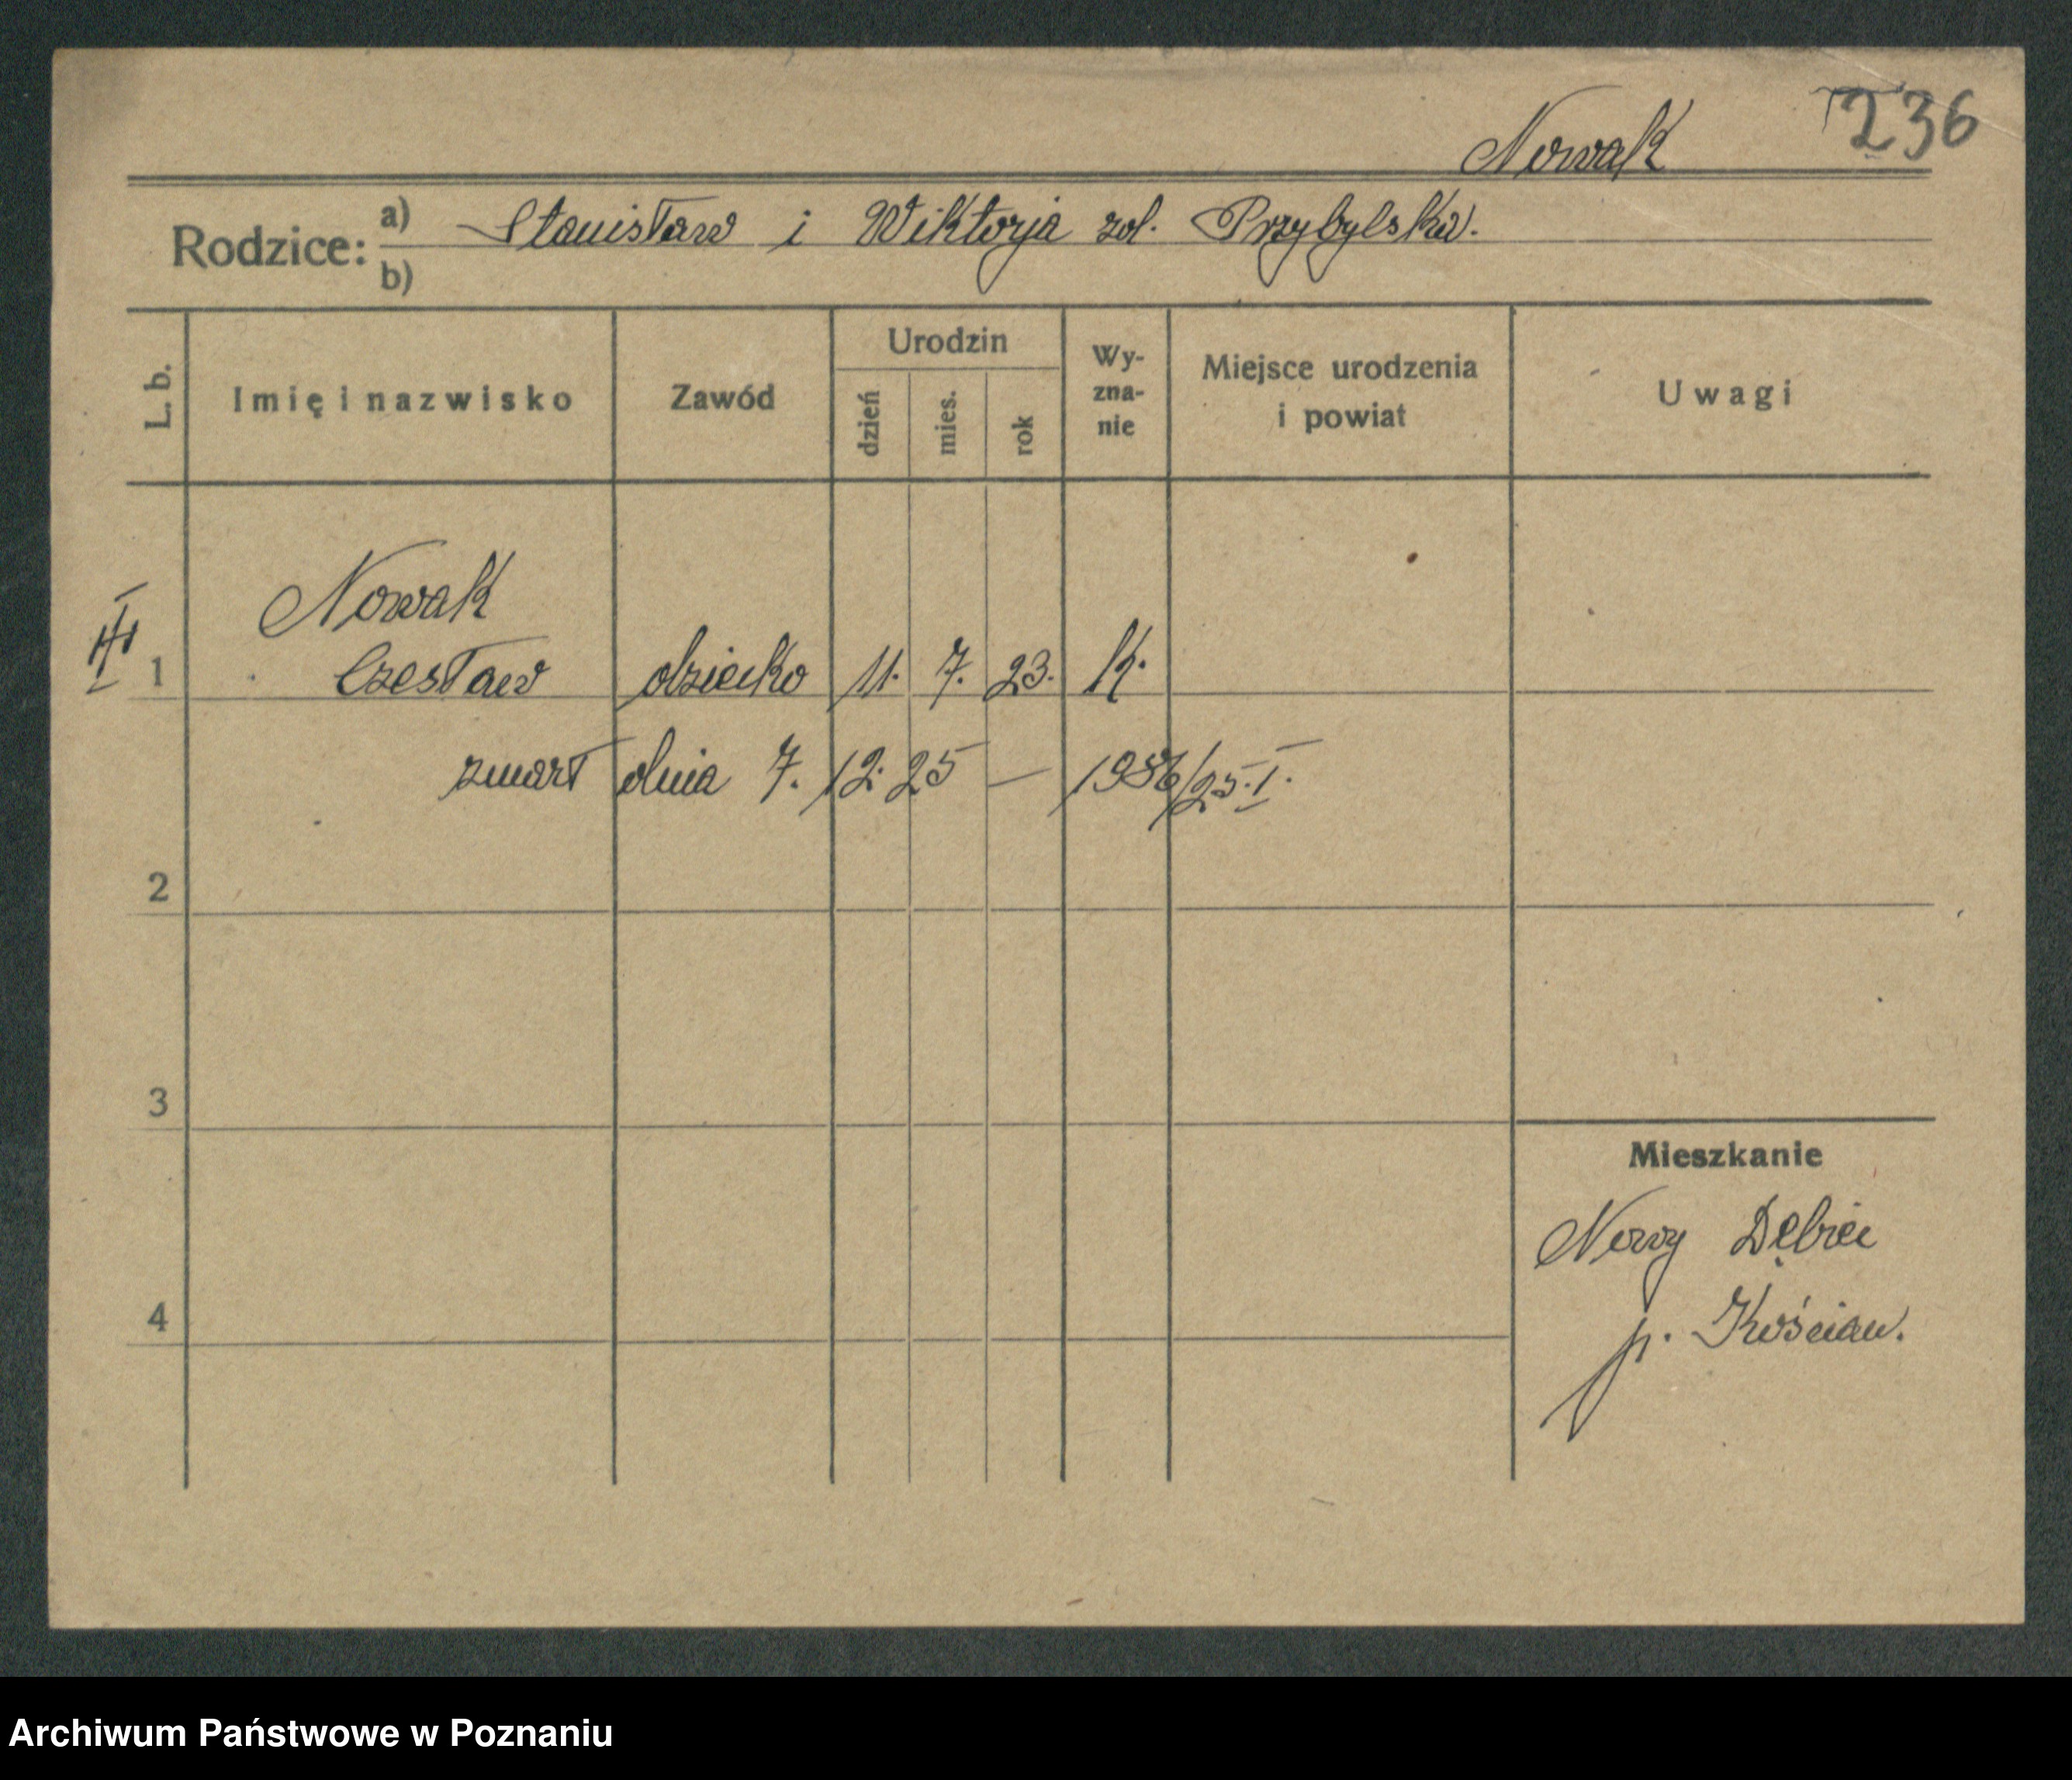 Nowak 236
Rodzice: a) Stanisław i Wiktorja zd. Przybylska.
b)
L. b. Imię i nazwisko Zawód Urodzin dzień mies. rok Wyznanie Miejsce urodzenia i powiat Uwagi
Nowak
1 Czesław dziecko 11. 7. 23. K.
zmarł dnia 7. 12. 25 — /25. I.
2
3
Mieszkanie
Nowy Dębiec
p. Kościan.
4
Archiwum Państwowe w Poznaniu